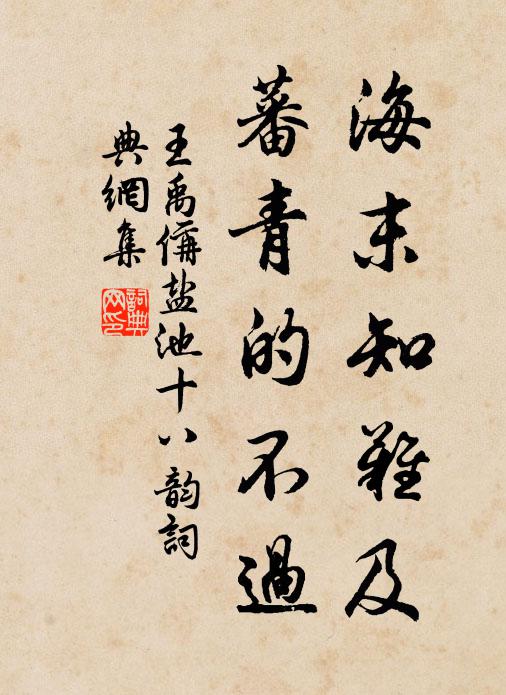 海末知難及
蕃青的不過
王禹偁盐池十八韵詞
典網集
詞典
网印